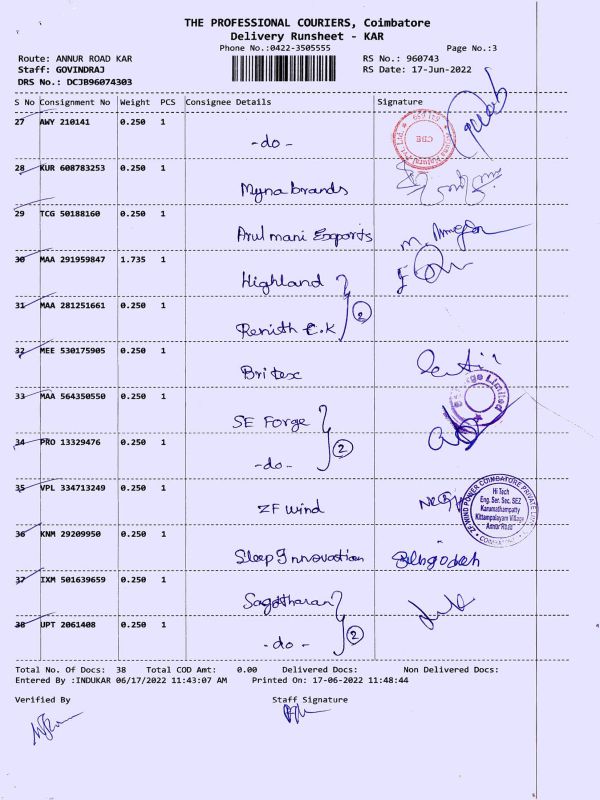 THE PROFESSIONAL COURIERS, Coimbatore
Delivery Runsheet - KAR
Phone No.:0422-3505555 Page No.:3
Route: ANNUR ROAD KAR RS No.: 960743
Staff: GOVINDRAJ RS Date: 17-Jun-2022
DRS No.: DCJB96074303
S No Consignment No Weight PCS Consignee Details Signature
27 AWY 210141 0.250 1
-do-
CBE
28 KUR 608783253 0.250 1
Myna brands
29 TCG 50188160 0.250 1
Arul mani Exports
30 MAA 291959847 1.735 1
Highland
31 MAA 281251661 0.250 1
2
Renith C.K
32 MEE 530175905 0.250 1
Britex
33 MAA 564350550 0.250 1
SE Forge
34 PRO 13329476 0.250 1
2
-do-
35 VPL 334713249 0.250 1
ZF wind
ZF WIND POWER COIMBATORE PRIVATE
Hi Tech
Eng. Ser. Sec. SEZ
Karumathampatty
Kittampalayam Village
Annur Road
36 KNM 29209950 0.250 1
Sleep Innovation
37 IXM 501639659 0.250 1
38 UPT 2061408 0.250 1
2
-do-
Total No. Of Docs: 38 Total COD Amt: 0.00 Delivered Docs: Non Delivered Docs:
Entered By :INDUKAR 06/17/2022 11:43:07 AM Printed On: 17-06-2022 11:48:44
Verified By Staff Signature